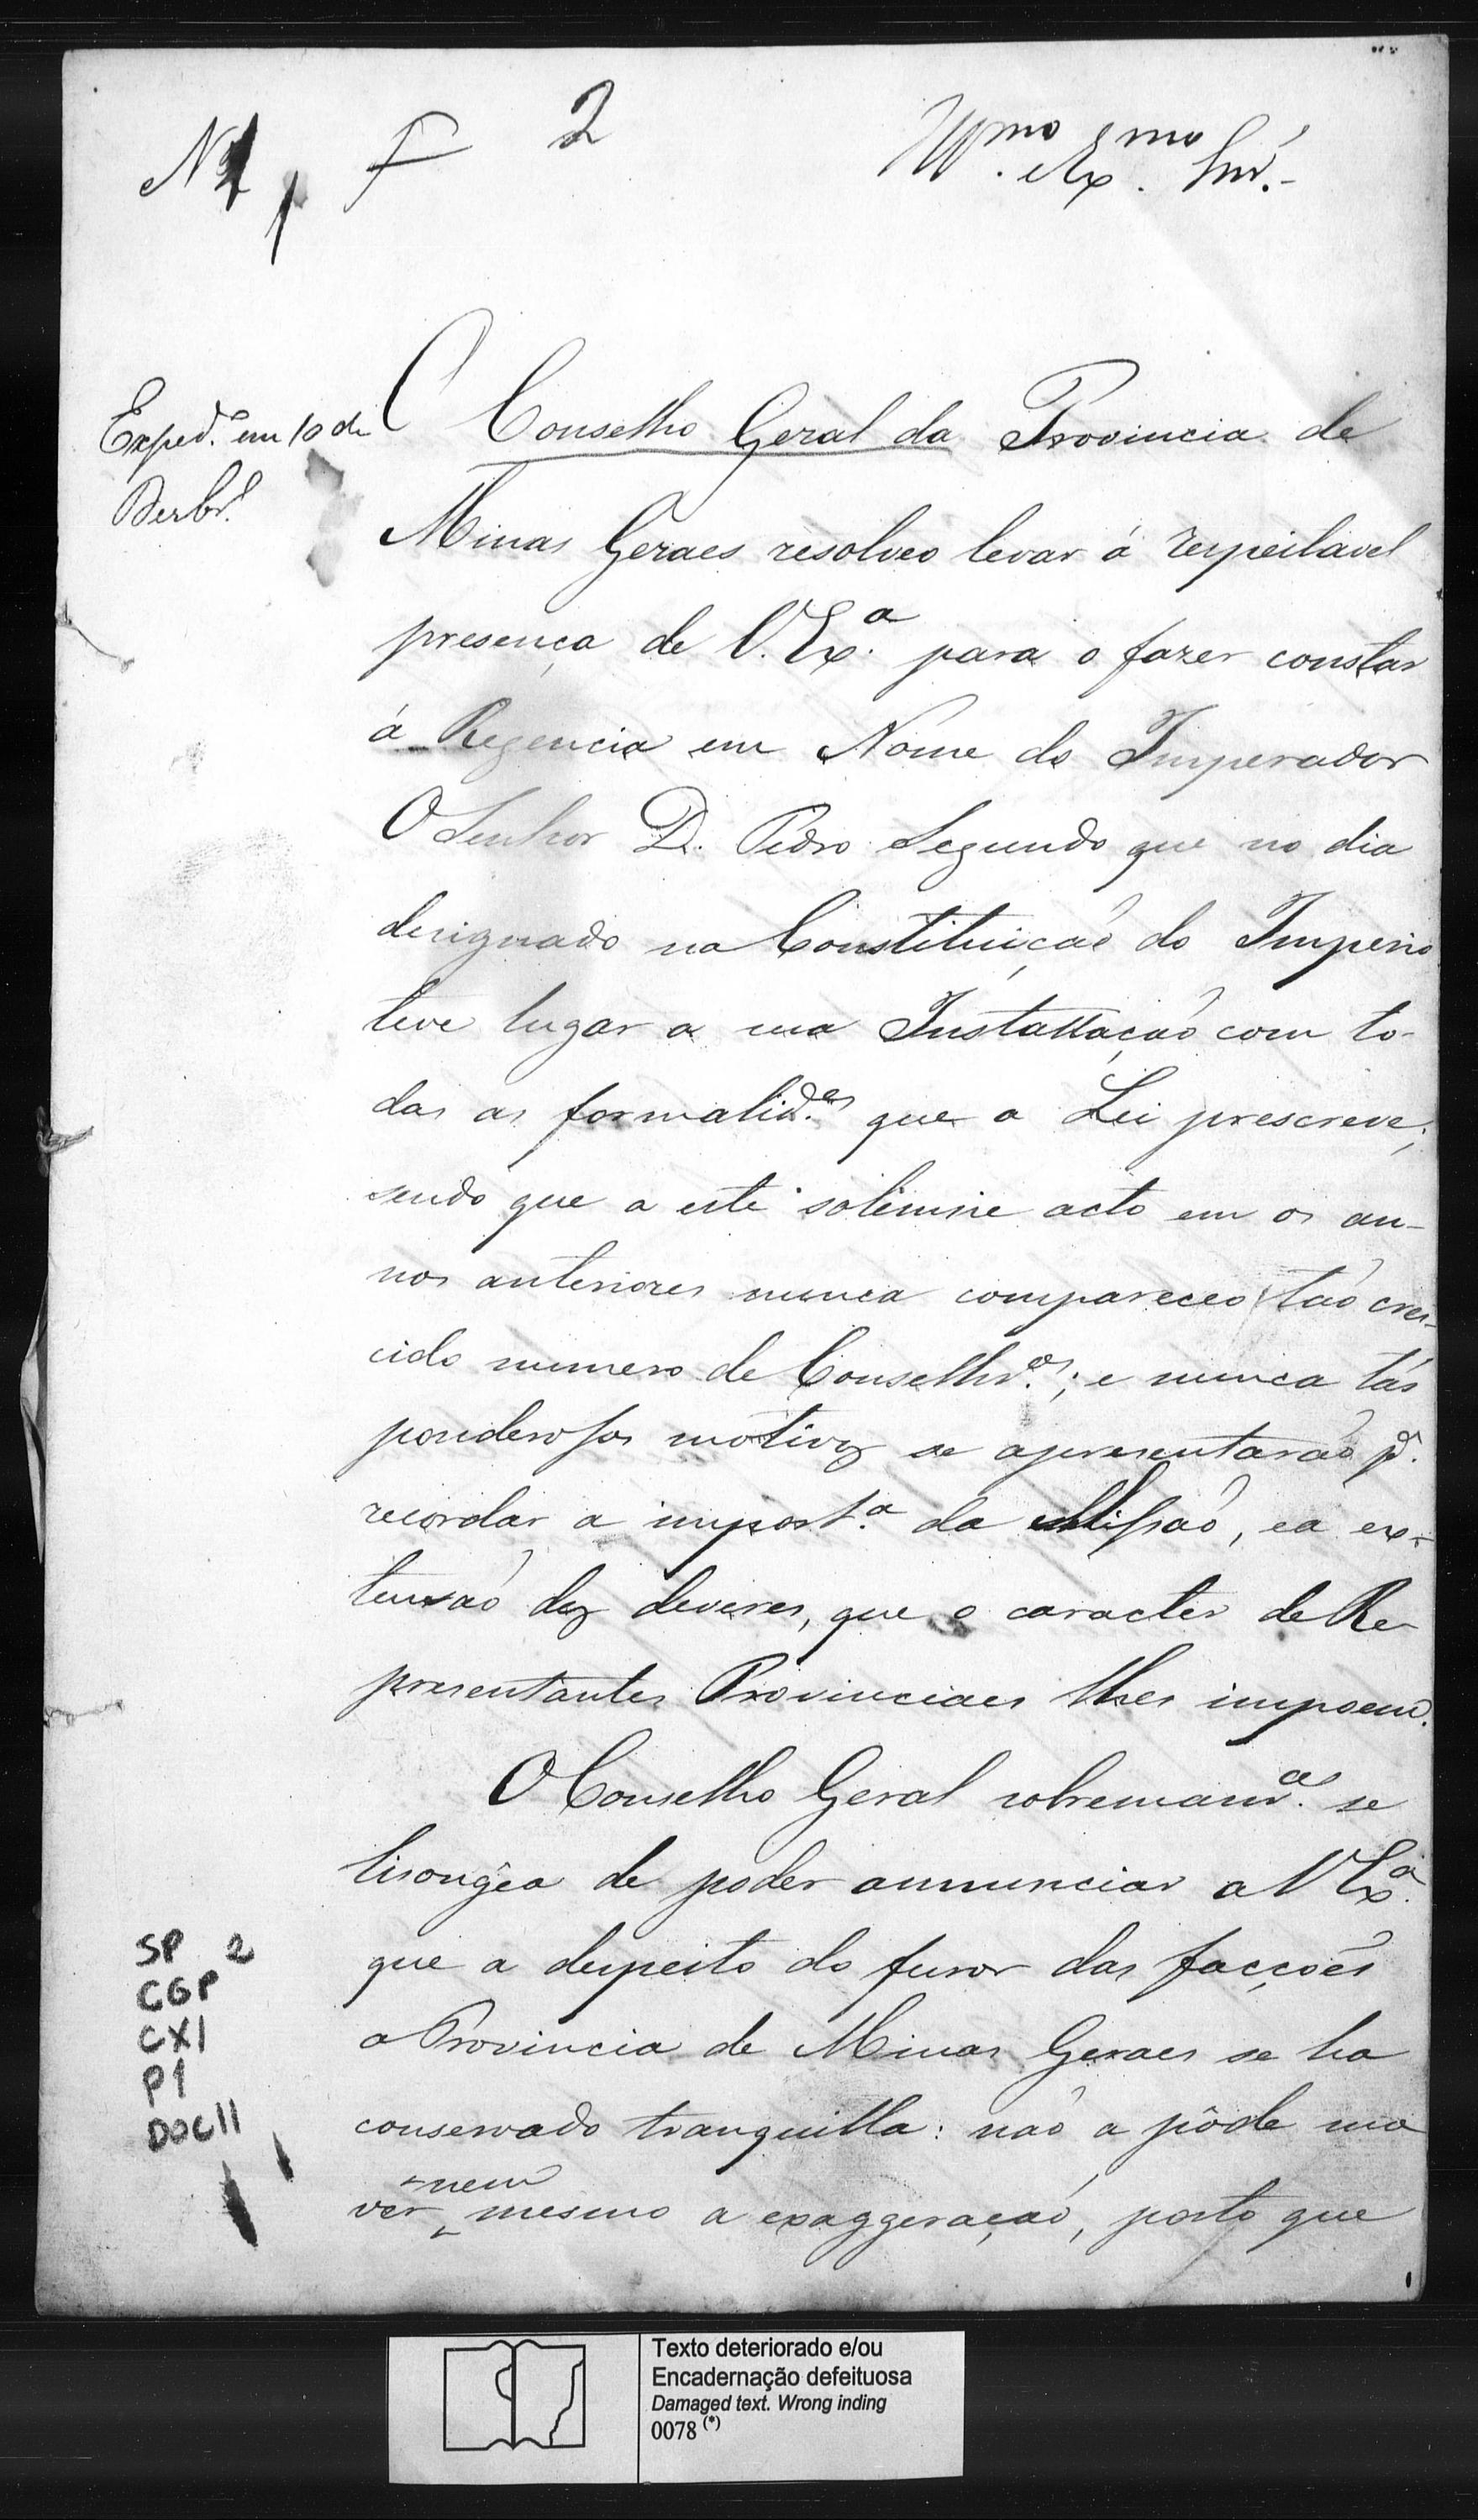 N 1 F 2
Illmo. Exmo. Snr.
Exped.e em 10 de
Dezbr.o
O Conselho Geral da Provincia de
Minas Geraes resolveo levar á respeitavel
presença de V. Ex.a para o fazer constar
á Regencia em Nome do Imperador
O Senhor D. Pedro Segundo que no dia
designado na Constituiçaõ do Imperio
teve lugar a sua Installaçaõ com to-
das as formalid.es que a Lei prescreve;
sendo que a este solemne acto em os an-
nos anteriores nunca compareceo taõ cres-
cido numero de Conselhr.os; e nunca tão
ponderosos motivos se apresentaraõ p.a
recordar a import.a da Missaõ, e a ex-
tensaõ dos deveres, que o caracter de Re-
presentantes Provinciaes lhes impoem.
O Conselho Geral sobreman.ra se
lisongêa de poder annunciar a V Ex.a
que a despeito do furor das facçoẽs
a Provincia de Minas Geraes se ha
conservado tranquilla: naõ a pôde mo
nem
ver mesmo a exaggeraçaõ, posto que
SP 2
CGP
CX1
P1
DOC11
Texto deteriorado e/ou
Encadernação defeituosa
Damaged text. Wrong inding
0078 (*)